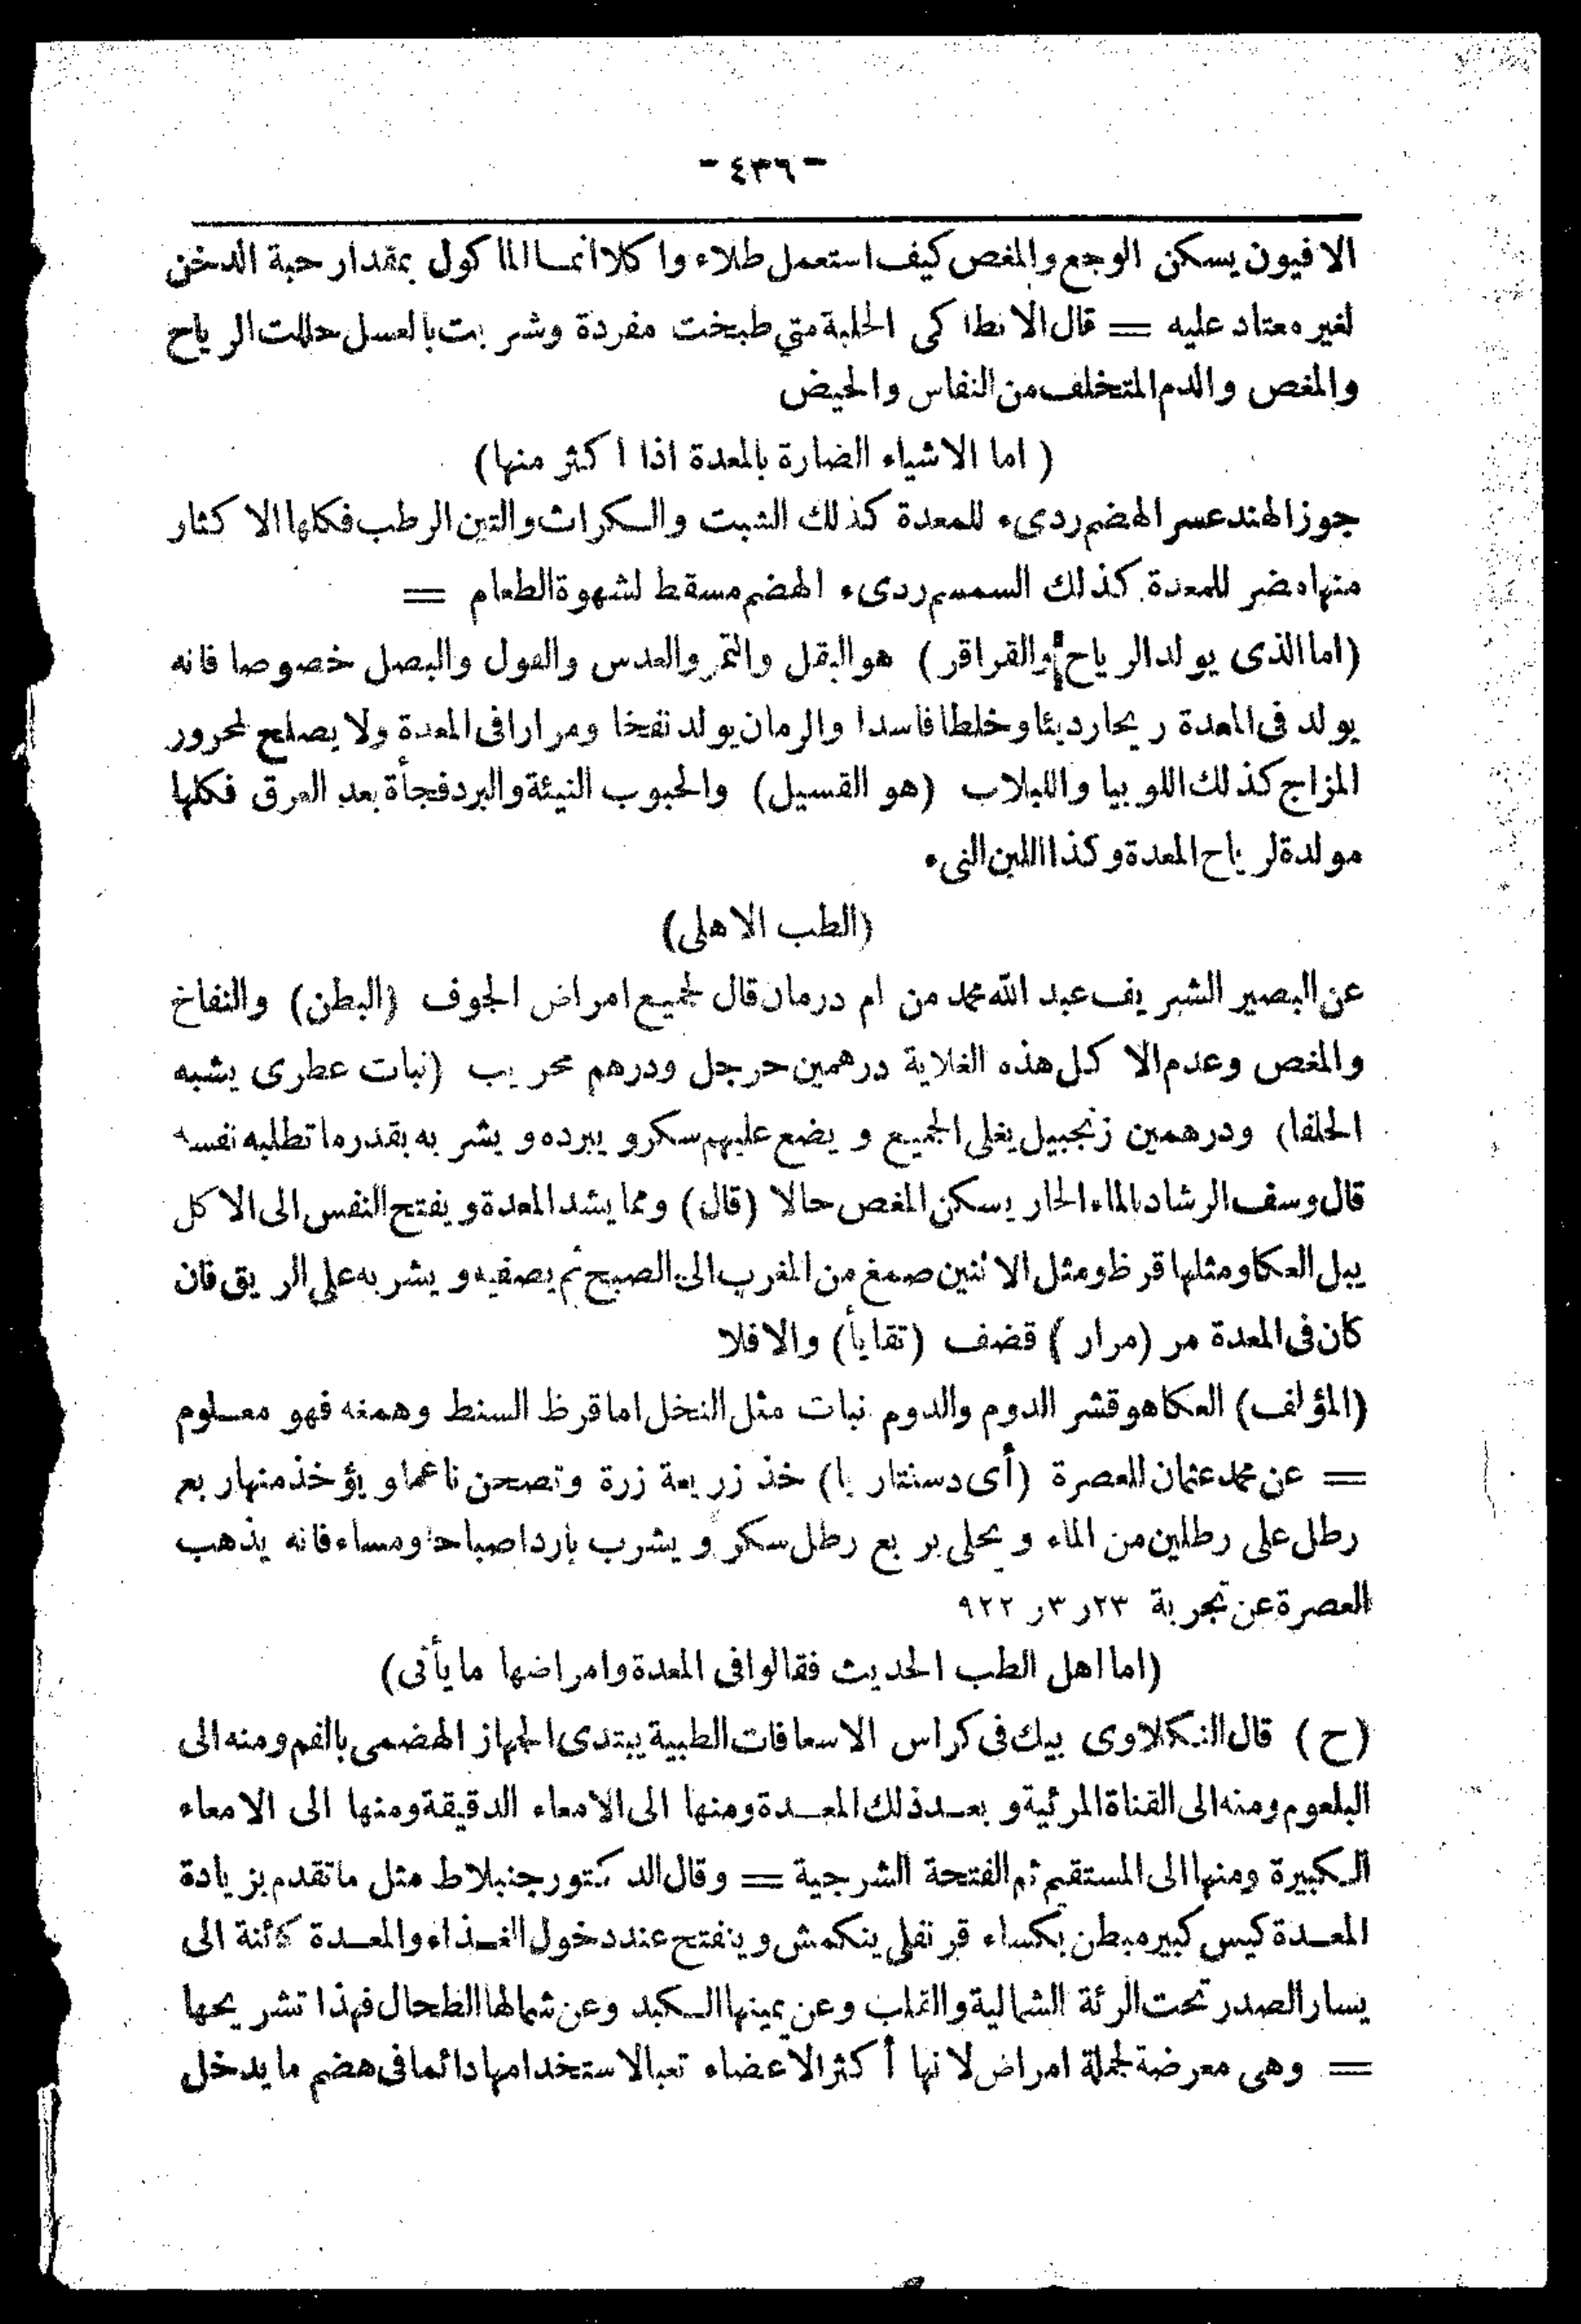 -٤٣٦-
الافيون يسكن الوجع والمغص كيف استعمل طلاء واكلا انما المأكول بمقدار حبة الدخن
لغير معتاد عليه = قال الانطاكى الحلبة متي طبخت مفردة وشربت بالعسل حللت الرياح
والمغص والدم المتخلف من النفاس والحيض
( اما الاشياء الضارة بالمعدة اذا اكثر منها)
جوز الهند عسر الهضم ردىء للمعدة كذلك الشبت والكراث والتين الرطب فكلها الاكثار
منها مضر للمعدة كذلك السمسم ردىء الهضم مسقط لشهوة الطعام =
(اما الذى يولد الرياح والقراقر) هو البقل والتمر والعدس والفول والبصل خصوصا فانه
يولد فى المعدة ريحا رديئا وخلطا فاسدا والرمان يولد نفخا ومرارا فى المعدة ولا يصلح لمحرور
المزاج كذلك اللوبيا واللبلاب (هو القسيل) والحبوب النيئة والبرد فجأة بعد العرق فكلها
مولدة لرياح المعدة وكذا اللبن النىء
(الطب الاهلى)
عن البصير الشريف عبد الله محمد من ام درمان قال لجميع امراض الجوف (البطن) والنفاخ
والمغص وعدم الاكل هذه الغلاية درهمين حرجل ودرهم محريب (نبات عطرى يشبه
الحلفا) ودرهمين زنجبيل يغلى الجميع ويضع عليهم سكر ويبرده ويشربه بقدر ما تطلبه نفسه
قال وسف الرشاد بالماء الحار يسكن المغص حالا (قال) ومما يشد المعدة ويفتح النفس الى الاكل
يبل العكا ومثلها قرظ ومثل الاثنين صمغ من المغرب الى الصبح ثم يصفيه ويشربه على الريق فان
كان فى المعدة مر (مرار) قضف (تقايأ) والا فلا
(المؤلف) العكا هو قشر الدوم والدوم نبات مثل النخل اما قرظ السنط وصمغه فهو معلوم
= عن محمد عثمان للعصرة (أى دسنتاريا) خذ زريعة زرة وتصحن ناعما ويؤخذ منها ربع
رطل على رطلين من الماء ويحلى بربع رطل سكر ويشرب باردا صباحا ومساء فانه يذهب
العصرة عن تجربة ٢٣ر ٣ر ٩٢٢
(اما اهل الطب الحديث فقالوا فى المعدة وامراضها ما يأتى)
(ح) قال النكلاوى بيك فى كراس الاسعافات الطبية يبتدى الجهاز الهضمى بالفم ومنه الى
البلعوم ومنه الى القناة المرئية وبعد ذلك المعدة ومنها الى الامعاء الدقيقة ومنها الى الامعاء
الكبيرة ومنها الى المستقيم ثم الفتحة الشرجية = وقال الدكتور جنبلاط مثل ما تقدم بزيادة
المعدة كيس كبير مبطن بكساء قرنفلى ينكمش وينفتح عند دخول الغذاء والمعدة كائنة الى
يسار الصدر تحت الرئة الشمالية والقلب وعن يمينها الكبد وعن شمالها الطحال فهذا تشريحها
= وهى معرضة لجملة امراض لانها أكثر الاعضاء تعبا لاستخدامها دائما فى هضم ما يدخل